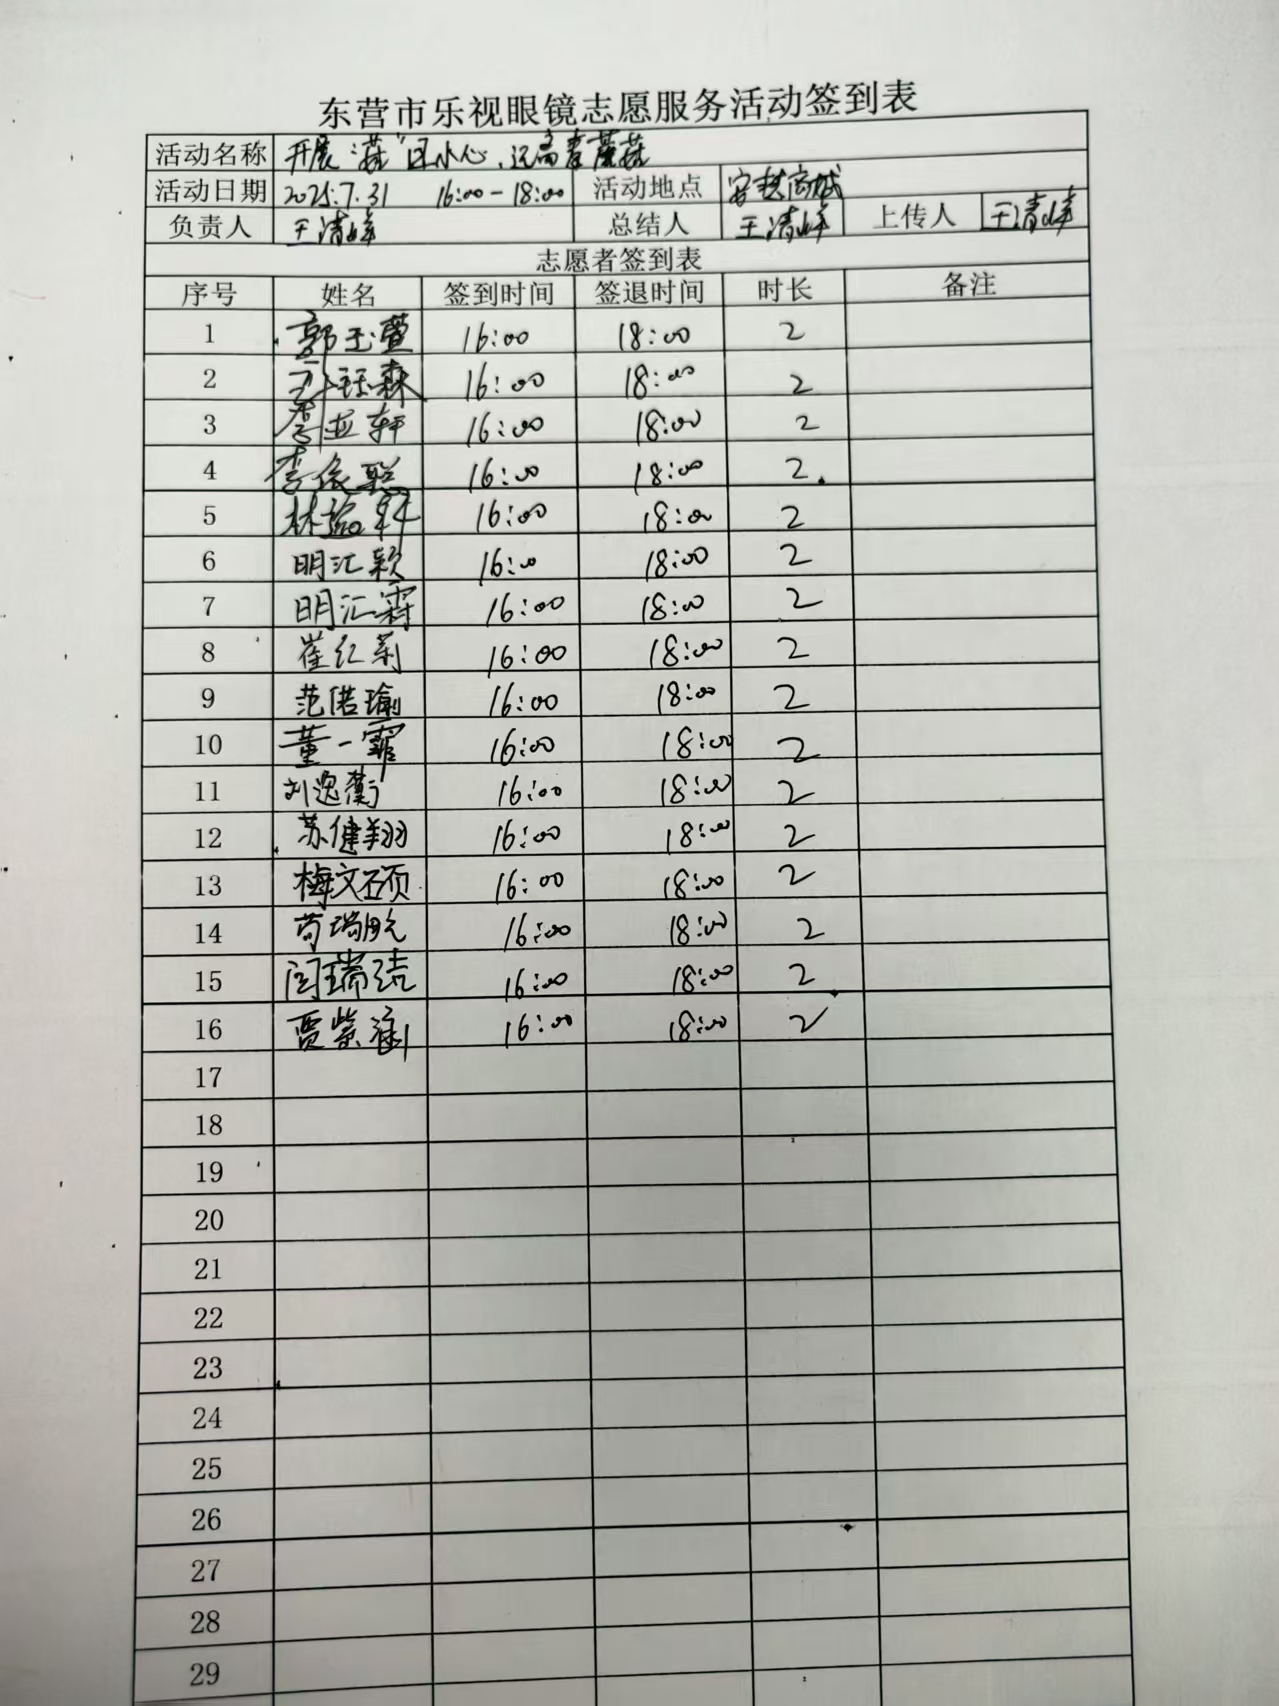 东营市乐视眼镜志愿服务活动签到表
活动名称 开展"菇"因小心,远离毒蘑菇
活动日期 2025.7.31 16:00-18:00 活动地点 商城
负责人 王清峰 总结人 王清峰 上传人 王清峰
志愿者签到表
序号 姓名 签到时间 签退时间 时长 备注
1 郭玉萱 16:00 18:00 2
2 森 16:00 18:00 2
3 李亚轩 16:00 18:00 2
4 李依聪 16:00 18:00 2.
5 林 轩 16:00 18:00 2
6 明汇颖 16:00 18:00 2
7 明汇霖 16:00 18:00 2
8 崔红莉 16:00 18:00 2
9 范偌瑜 16:00 18:00 2
10 董一霏 16:00 18:00 2
11 刘逸蘅 16:00 18:00 2
12 苏健翔 16:00 18:00 2
13 梅文硕 16:00 18:00 2
14 苟瑞航 16:00 18:00 2
15 闫瑞洁 16:00 18:00 2
16 贾紫涵 16:00 18:00 2
17
18
19
20
21
22
23
24
25
26
27
28
29